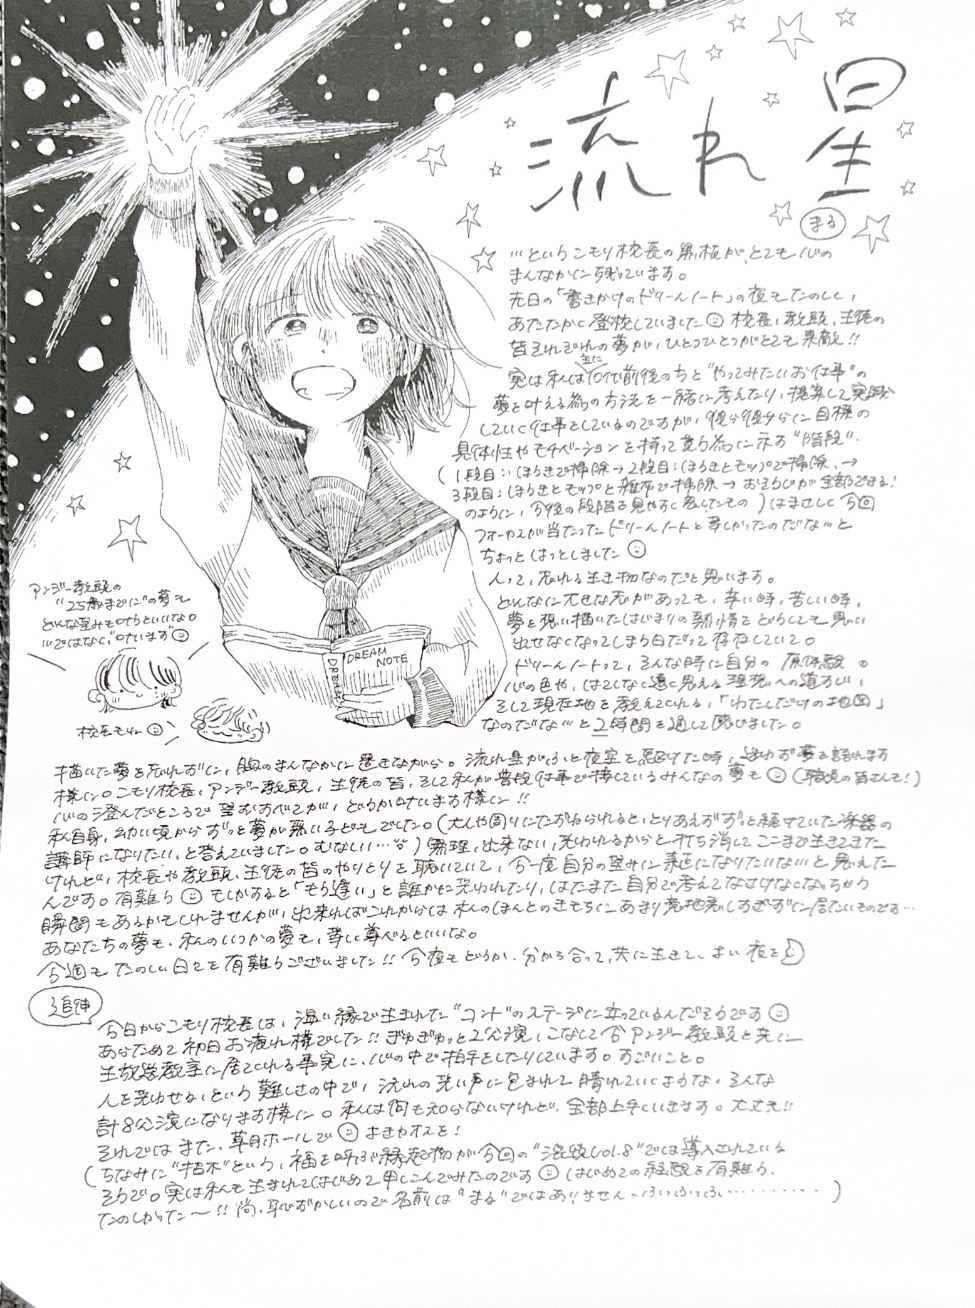 流れ星
まる
…というこもり校長の黒板が、とても心の
まんなかに残っています。
先日の「書きかけのドリームノート」の夜もたのしく、
あたたかく登校していました 校長、教頭、生徒の
皆それぞれの夢が、ひとつひとつがとても素敵!!
実は私は主に10代前後の方と"やってみたいお仕事"の
夢を叶える為の方法を一緒に考えたり、提案して実践
していく仕事をしているのですが、後々に目標の
具体性やモチベーションを持って貰う為に示す"階段"。
(1段目:ほうきで掃除→2段目:ほうきとモップで掃除、→
3段目:ほうきとモップと雑巾で掃除→おそうじが全部できる!
のように、今後の段階を見やすく表したもの)はまさしく今回
フォーカスが当たったドリームノートと等しかったのだな…と
ちょっとはっとしました
人って、忘れる生き物なのだと思います。
どんなに大切な志があっても、辛い時、苦しい時、
夢を想い描いたはじまりの熱情をどうしても思い
出せなくなってしまう日だって存在していて。
ドリームノートって、そんな時に自分の原体験の
心の色や、はてしなく遠く思える理想への道すじ、
そして現在地を教えてくれる、「わたしだけの地図」
なのだな…と2時間を通して感じました。
アンジー教頭の
"25歳までに"の夢も
どんな望みも叶うといいな。
…ではなく"叶います"
校長もね
DREAM NOTE
DREAM
描いた夢を忘れずに、胸のまんなかに置きながら。流れ星がふと夜空を駆けた時、迷わず夢を語れます
様に。こもり校長、アンジー教頭、生徒の皆、そして私が普段仕事で接しているみんなの夢も(職場の皆さんも!)
心の澄んだところで望むすべてが、どうか叶います様に!!
私自身、幼い頃からずっと夢が無い子どもでした。(大人や周りにたずねられると、とりあえず"ずっと続けていた楽器の
講師になりたい"と答えていました。むなしい…)無理、出来ない、笑われるからと打ち消してここまで生きてきた
けれど、校長や教頭、生徒の皆のやりとりを聴いていて、今一度自分の望みに素直になりたいな…と思えた
んです。有難う もしかすると「もう遅い」と誰かに笑われたり、はたまた自分で考えてなさけなくなっちゃう
瞬間もあるかもしれませんが、出来ればこれからは私のほんとのきもちにあまり意地悪しすぎずに居たいものです…
あなたちの夢も、私のいつかの夢も、等しく尊べるといいな。
今週もたのしい日々を有難うございました!! 今夜もどうか、分かち合って、共に生きて、よい夜を
追伸
今日からこもり校長は、温い縁で生まれた"コント"のステージに立っているんだそうです
あらためて初日お疲れ様でした!! ぎゅぎゅっと2公演、こなして今アンジー教頭と共に
生放送教室に居てくれる事実に、心の中で拍手をしたりしています。すごいこと。
人を笑わせるという難しさの中で、沢山の笑い声に包まれて晴れていくような、そんな
計8公演になります様に。私は何も知らないけれど、全部上手くいきます。大丈夫!!
それではまた、草月ホールで よきカオスを!
(ちなみに"招木"という、福を呼ぶ縁起物が今回の"混頓vol.8"では導入されている
そうで。実は私も生まれてはじめて申しこんでみたのです はじめての経験を有難う、
たのしかった〜!! 尚、恥ずかしいので名前は"まる"ではありません〜ふふふふふ………)